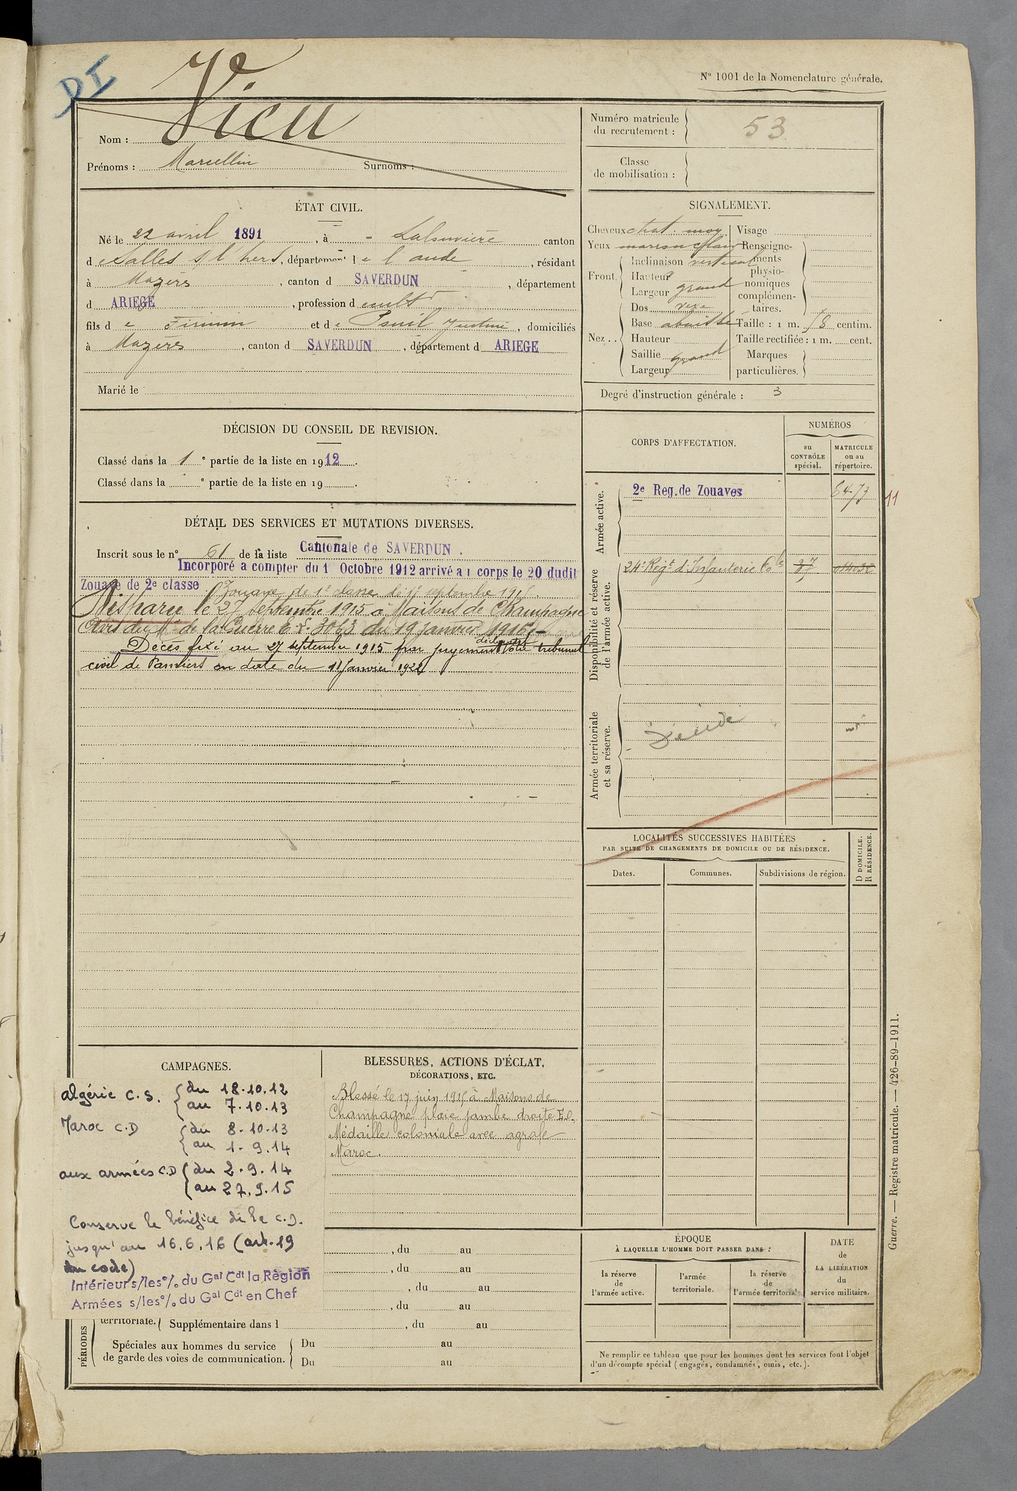 DI
N° 1001 de la Nomenclature générale.
Nom : Vieu
Prénoms : Marcellin Surnoms :
Numéro matricule du recrutement : 53
Classe de mobilisation :
ÉTAT CIVIL.
Né le 22 avril 1891, à Lalouvière canton
d e Salles s/ l'hers, département de l'aude, résidant
à Mazères, canton d SAVERDUN, département
d ARIEGE, profession d cultr
fils d e Firmin et d e Justine, domiciliés
à Mazères, canton d SAVERDUN, département d ARIEGE
Marié le
SIGNALEMENT.
Cheveux chat. moy
Yeux marron clair
Front. Inclinaison vertical
Hauteur
Largeur grand
Nez.. Dos
Base
Hauteur
Saillie grand
Largeur
Visage
Renseignements physionomiques complémentaires.
Taille : 1 m. centim.
Taille rectifiée : 1 m. cent.
Marques particulières.
Degré d'instruction générale : 3
DÉCISION DU CONSEIL DE REVISION.
Classé dans la 1e partie de la liste en 1912.
Classé dans la e partie de la liste en 19
DÉTAIL DES SERVICES ET MUTATIONS DIVERSES.
Inscrit sous le n° 61 de la liste Cantonale de SAVERDUN.
Incorporé a compter du 1 Octobre 1912 arrivé au corps le 20 dudit
Zouave de 2e classe Zouave de 1e classe le 11 septembre
Disparu le 27 septembre 1915 à Maisons de Champagne
Avis du Me de la Guerre 3063 du 19 Janvier 1916
Décès fixé au 27 septembre 1915 par jugement déclaratif du tribunal
civil de Pamiers en date du 11 Janvier
CORPS D'AFFECTATION.
NUMÉROS
au CONTRÔLE spécial.
MATRICULE ou au répertoire.
Armée active.
2e Reg. de Zouaves 8473
11
Disponibilité et réserve de l'armée active.
24e Regt d'Infanterie Cole
Armée territoriale et sa réserve.
Décédé
LOCALITÉS SUCCESSIVES HABITÉES
PAR SUITE DE CHANGEMENTS DE DOMICILE OU DE RÉSIDENCE.
Dates. Communes. Subdivisions de région.
D DOMICILE. R RÉSIDENCE.
CAMPAGNES.
algérie C.S. du 18.10.12
au 7.10.13
Maroc C.D du 8.10.13
au 1.9.14
aux armées C.D du 2.9.14
au 27.9.15
Conserve le bénéfice de la C.D.
jusqu'au 16.6.16 (art. 19
du code)
Intérieur s/les % du Gal Cdt la Région
Armées s/les % du Gal Cdt en Chef
BLESSURES, ACTIONS D'ÉCLAT,
DÉCORATIONS, ETC.
Blessé le 17 juin 1915 à Maisons de
Champagne plaie jambe droite E.O.
Médaille coloniale avec agrafe
Maroc.
, du au
, du au
, du au
, du au
PÉRIODES
territoriale. Supplémentaire dans l , du au
Spéciales aux hommes du service de garde des voies de communication. Du au
Du au
ÉPOQUE
À LAQUELLE L'HOMME DOIT PASSER DANS :
la réserve de l'armée active.
l'armée territoriale.
la réserve de l'armée territoriale.
DATE de LA LIBÉRATION du service militaire.
Ne remplir ce tableau que pour les hommes dont les services font l'objet
d'un décompte spécial (engagés, condamnés, omis, etc.).
Guerre. — Registre matricule. — 426-89-1911.